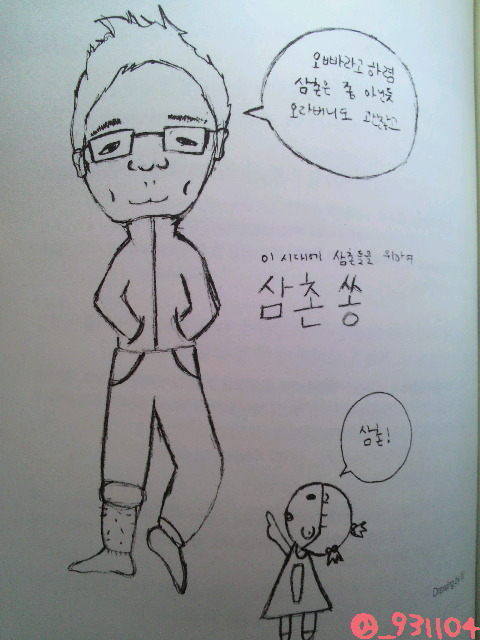 오빠라고하렴
삼촌은 좀 아닌듯
오라버니도 괜찮고
이 시대에 삼촌들을 위하여
삼촌쏭
삼촌!
@_931104